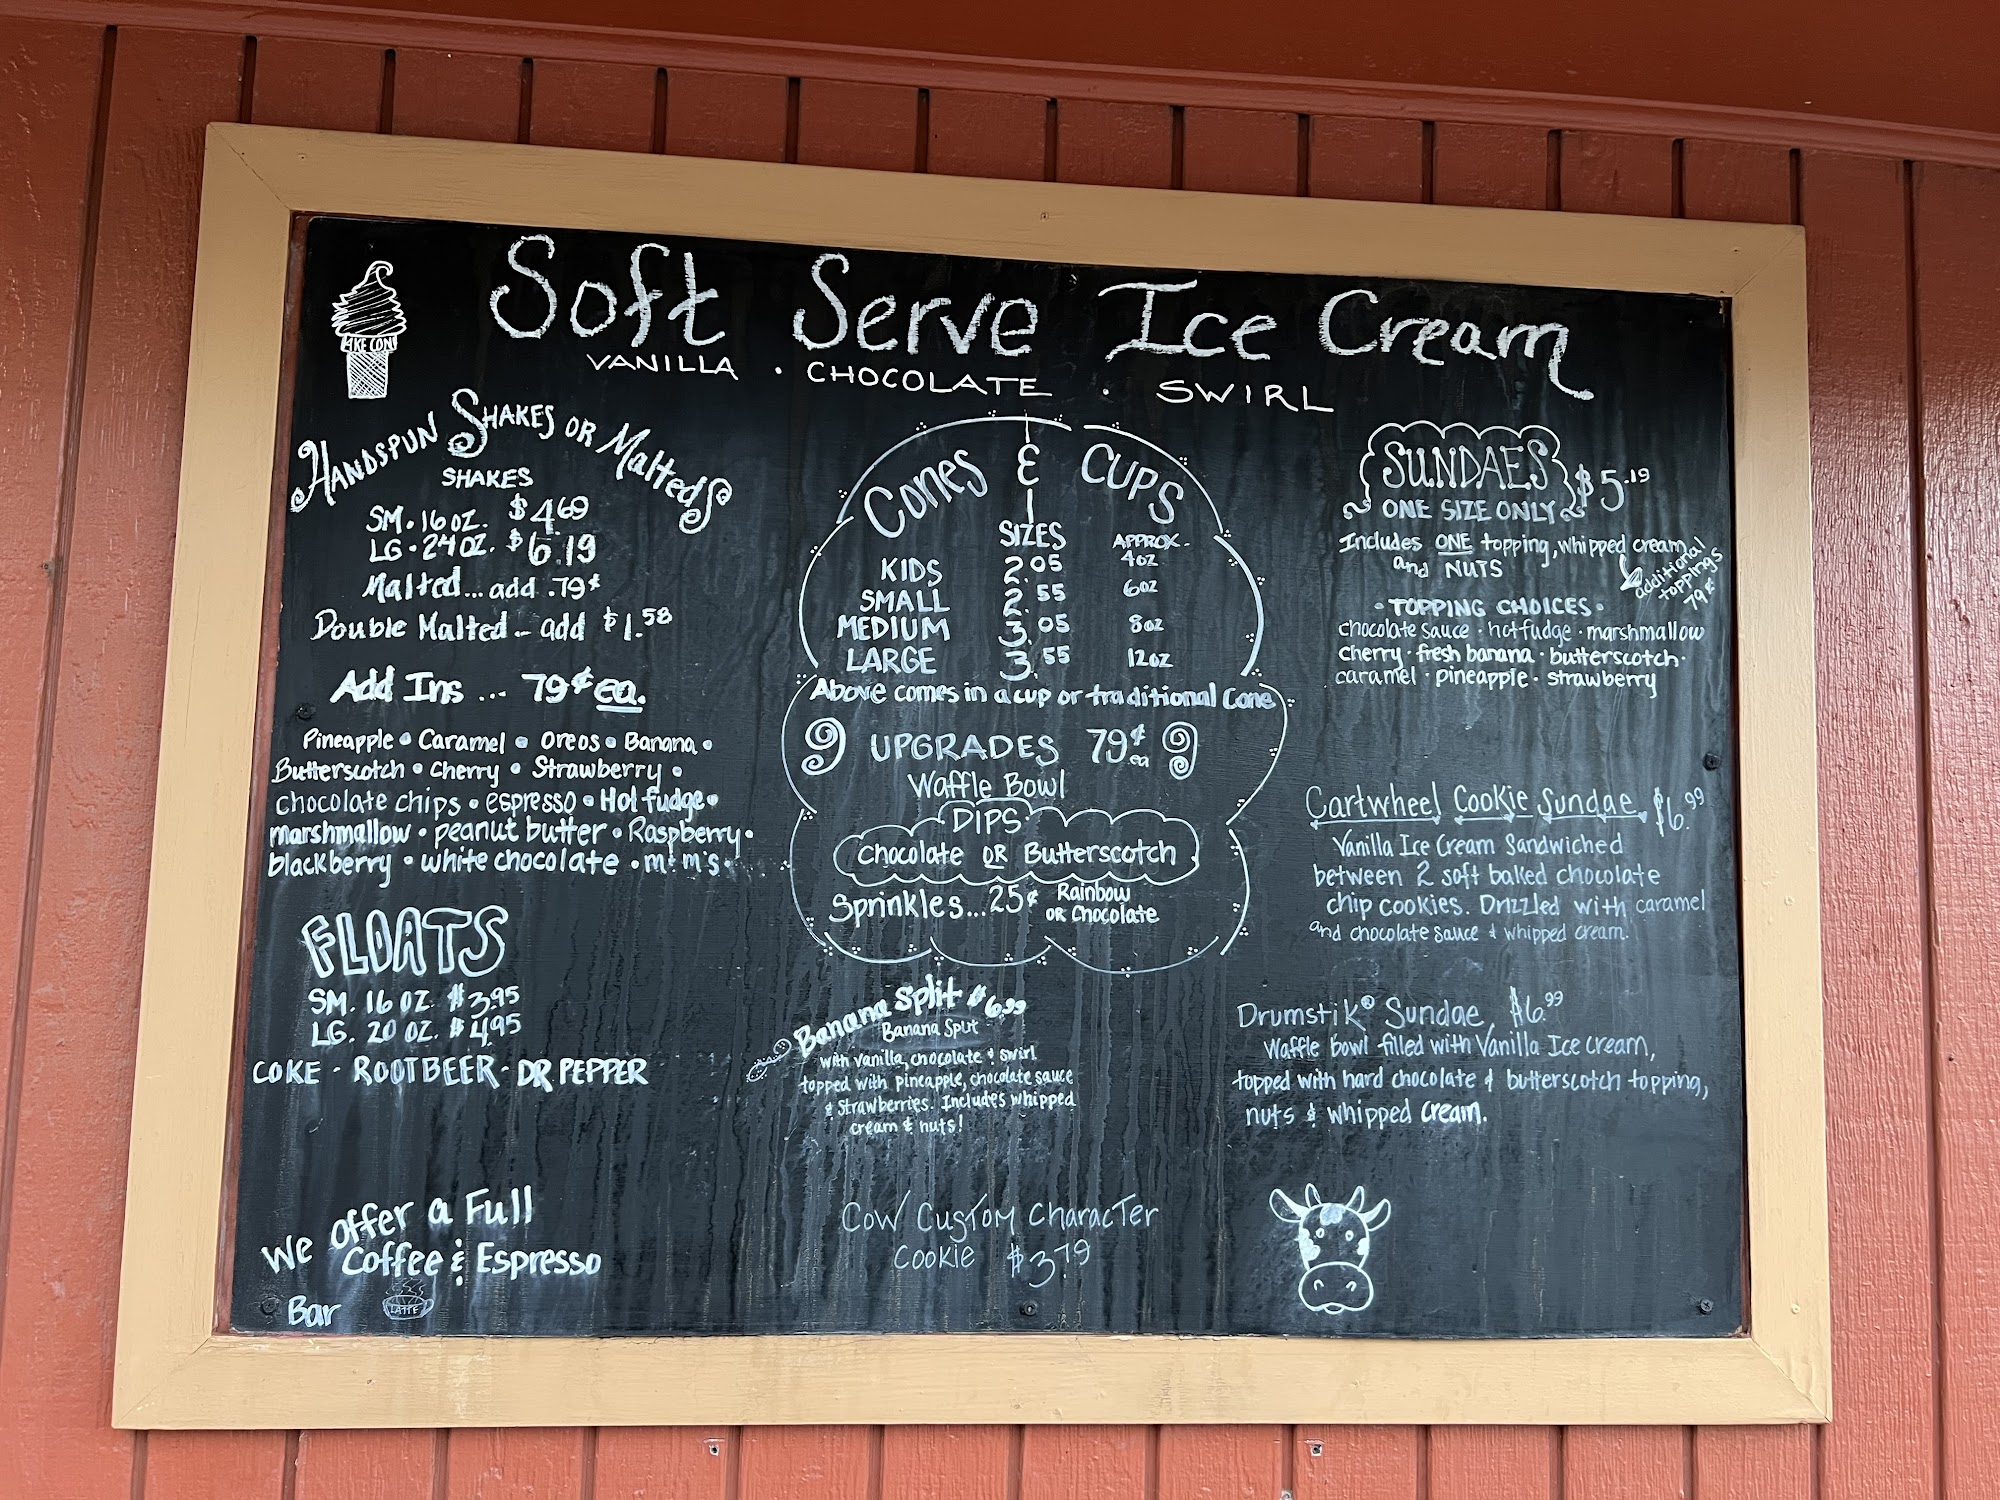 Soft Serve Ice Cream
VANILLA · CHOCOLATE · SWIRL
HANDSPUN SHAKES OR MALTEDS
SHAKES
SM. 16 OZ. $4.69
LG. 24 OZ. $6.19
Malted... add .79¢
Double Malted... add $1.58
Add Ins ... 79¢ ea.
Pineapple • Caramel • Oreos • Banana •
Butterscotch • Cherry • Strawberry •
chocolate chips • espresso • Hot fudge •
marshmallow • peanut butter • Raspberry •
blackberry • white chocolate • m+m's •
FLOATS
SM. 16 OZ. $3.95
LG. 20 OZ. $4.95
COKE · ROOTBEER · DR PEPPER
We offer a Full
Coffee & Espresso
Bar
LATTE
CONES & CUPS
SIZES APPROX.
KIDS 2.05 4oz
SMALL 2.55 6oz
MEDIUM 3.05 8oz
LARGE 3.55 12oz
Above comes in a cup or traditional Cone
UPGRADES 79¢ ea
Waffle Bowl
DIPS
Chocolate OR Butterscotch
Sprinkles...25¢ Rainbow
OR Chocolate
Banana Split $6.99
Banana Split
with vanilla, chocolate & swirl
topped with pineapple, chocolate sauce
& strawberries. Includes whipped
cream & nuts!
COW CUSTOM CHARACTER
COOKIE $3.79
SUNDAES $5.19
ONE SIZE ONLY
Includes ONE topping, whipped cream
and NUTS
additional
toppings
79¢
• TOPPING CHOICES •
chocolate sauce · hot fudge · marshmallow
cherry · fresh banana · butterscotch ·
caramel · pineapple · strawberry
Cartwheel Cookie Sundae $6.99
Vanilla Ice Cream Sandwiched
between 2 soft baked chocolate
chip cookies. Drizzled with caramel
and chocolate sauce & whipped cream.
Drumstik® Sundae $6.99
Waffle bowl filled with Vanilla Ice cream,
topped with hard chocolate & butterscotch topping,
nuts & whipped cream.